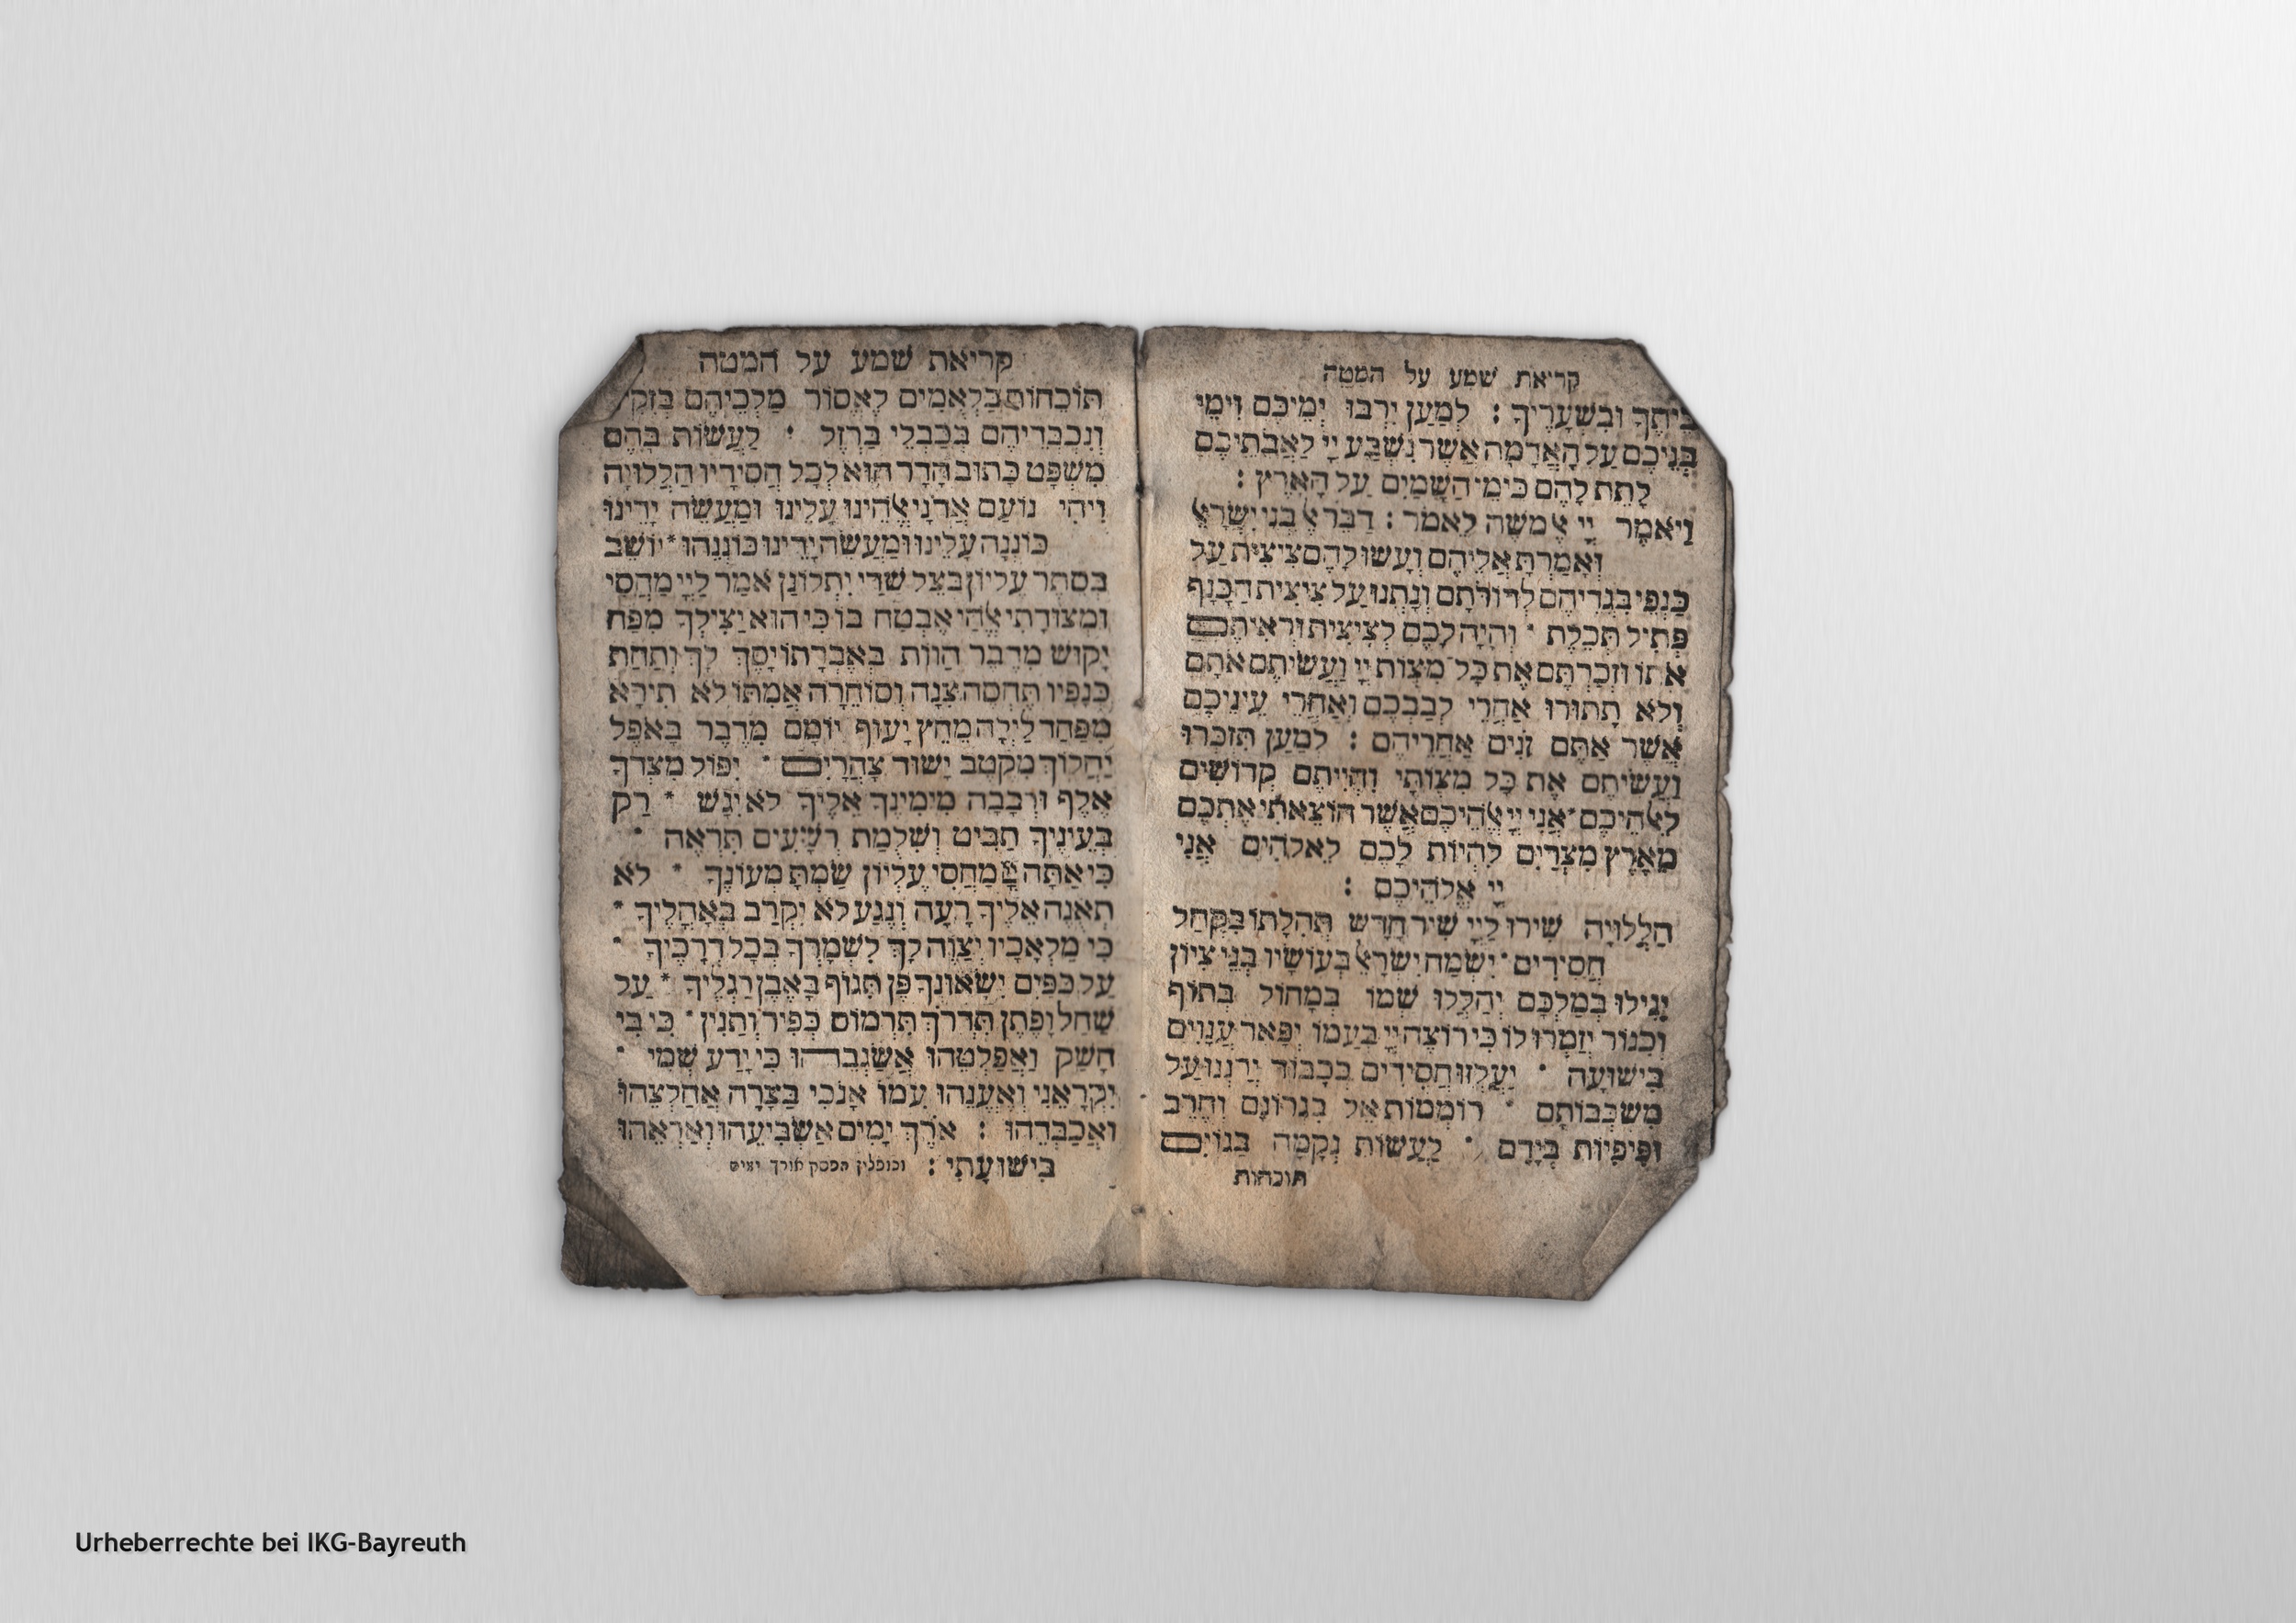 קריאת שמע על המטה
ביתֶךָ וּבִשְׁעָרֶיךָ : לְמַעַן יִרְבּוּ יְמֵיכֶם וִימֵי
בְּנֵיכֶם עַל הָאֲדָמָה אֲשֶׁר נִשְׁבַּע יְיָ לַאֲבֹתֵיכֶם
לָתֵת לָהֶם כִּימֵי הַשָּׁמַיִם עַל הָאָרֶץ :
וַיֹּאמֶר יְיָ אֶל משֶׁה לֵּאמֹר : דַּבֵּר אֶל בְּנֵי יִשְׂרָאֵל
וְאָמַרְתָּ אֲלֵיהֶם וְעָשׂוּ לָהֶם צִיצִית עַל
כַּנְפֵי בִגְדֵיהֶם לְדוֹרֹתָם וְנָתְנוּ עַל צִיצִית הַכָּנָף
פְּתִיל תְּכֵלֶת · וְהָיָה לָכֶם לְצִיצִית וּרְאִיתֶם
אֹתוֹ וּזְכַרְתֶּם אֶת כָּל מִצְוֹת יְיָ וַעֲשִׂיתֶם אֹתָם
וְלֹא תָתוּרוּ אַחֲרֵי לְבַבְכֶם וְאַחֲרֵי עֵינֵיכֶם
אֲשֶׁר אַתֶּם זֹנִים אַחֲרֵיהֶם : לְמַעַן תִּזְכְּרוּ
וַעֲשִׂיתֶם אֶת כָּל מִצְוֹתָי וִהְיִיתֶם קְדוֹשִׁים
לֵאלֹהֵיכֶם · אֲנִי יְיָ אֱלֹהֵיכֶם אֲשֶׁר הוֹצֵאתִי אֶתְכֶם
מֵאֶרֶץ מִצְרַיִם לִהְיוֹת לָכֶם לֵאלֹהִים אֲנִי
יְיָ אֱלֹהֵיכֶם :
הַלְלוּיָהּ שִׁירוּ לַיְיָ שִׁיר חָדָשׁ תְּהִלָּתוֹ בִּקְהַל
חֲסִידִים · יִשְׂמַח יִשְׂרָאֵל בְּעוֹשָׂיו בְּנֵי צִיּוֹן
יָגִילוּ בְמַלְכָּם יְהַלְלוּ שְׁמוֹ בְמָחוֹל בְּתוֹף
וְכִנּוֹר יְזַמְּרוּ לוֹ כִּי רוֹצֶה יְיָ בְּעַמּוֹ יְפָאֵר עֲנָוִים
בִּישׁוּעָה · יַעְלְזוּ חֲסִידִים בְּכָבוֹד יְרַנְּנוּ עַל
מִשְׁכְּבוֹתָם · רוֹמְמוֹת אֵל בִּגְרוֹנָם וְחֶרֶב
וּפִיפִיּוֹת בְּיָדָם · לַעֲשׂוֹת נְקָמָה בַּגּוֹיִם
תוכחות
קריאת שמע על המטה
תּוֹכֵחוֹת בַּלְאֻמִּים לֶאְסוֹר מַלְכֵיהֶם בְּזִקִּ
וְנִכְבְּדֵיהֶם בְּכַבְלֵי בַרְזֶל · לַעֲשׂוֹת בָּהֶם
מִשְׁפָּט כָּתוּב הָדָר הוּא לְכָל חֲסִידָיו הַלְלוּיָהּ
וִיהִי נוֹעַם אֲדֹנָי אֱלֹהֵינוּ עָלֵינוּ וּמַעֲשֵׂה יָדֵינוּ
כּוֹנְנָה עָלֵינוּ וּמַעֲשֵׂה יָדֵינוּ כּוֹנְנֵהוּ * יוֹשֵׁב
בְּסֵתֶר עֶלְיוֹן בְּצֵל שַׁדַּי יִתְלוֹנָן אֹמַר לַיְיָ מַחֲסִי
וּמְצוּדָתִי אֱלֹהַי אֶבְטַח בּוֹ כִּי הוּא יַצִּילְךָ מִפַּח
יָקוּשׁ מִדֶּבֶר הַוּוֹת בְּאֶבְרָתוֹ יָסֶךְ לָךְ וְתַחַת
כְּנָפָיו תֶּחְסֶה צִנָּה וְסוֹחֵרָה אֲמִתּוֹ לֹא תִירָא
מִפַּחַד לַיְלָה מֵחֵץ יָעוּף יוֹמָם מִדֶּבֶר בָּאֹפֶל
יַהֲלוֹךְ מִקֶּטֶב יָשׁוּד צָהֳרָיִם · יִפּוֹל מִצִּדְּךָ
אֶלֶף וּרְבָבָה מִימִינֶךָ אֵלֶיךָ לֹא יִגָּשׁ * רַק
בְּעֵינֶיךָ תַבִּיט וְשִׁלֻּמַת רְשָׁעִים תִּרְאֶה ·
כִּי אַתָּה יְיָ מַחְסִי עֶלְיוֹן שַׂמְתָּ מְעוֹנֶךָ * לֹא
תְאֻנֶּה אֵלֶיךָ רָעָה וְנֶגַע לֹא יִקְרַב בְּאָהֳלֶיךָ ·
כִּי מַלְאָכָיו יְצַוֶּה לָּךְ לִשְׁמָרְךָ בְּכָל דְּרָכֶיךָ ·
עַל כַּפַּיִם יִשָּׂאוּנְךָ פֶּן תִּגּוֹף בָּאֶבֶן רַגְלֶיךָ * עַל
שַׁחַל וָפֶתֶן תִּדְרֹךְ תִּרְמוֹס כְּפִיר וְתַנִּין · כִּי בִי
חָשַׁק וַאֲפַלְּטֵהוּ אֲשַׂגְּבֵהוּ כִּי יָדַע שְׁמִי ·
יִקְרָאֵנִי וְאֶעֱנֵהוּ עִמּוֹ אָנֹכִי בְּצָרָה אֲחַלְּצֵהוּ
וַאֲכַבְּדֵהוּ : אֹרֶךְ יָמִים אַשְׂבִּיעֵהוּ וְאַרְאֵהוּ
בִּישׁוּעָתִי : וכופלין הפסק אורך ימים
Urheberrechte bei IKG-Bayreuth